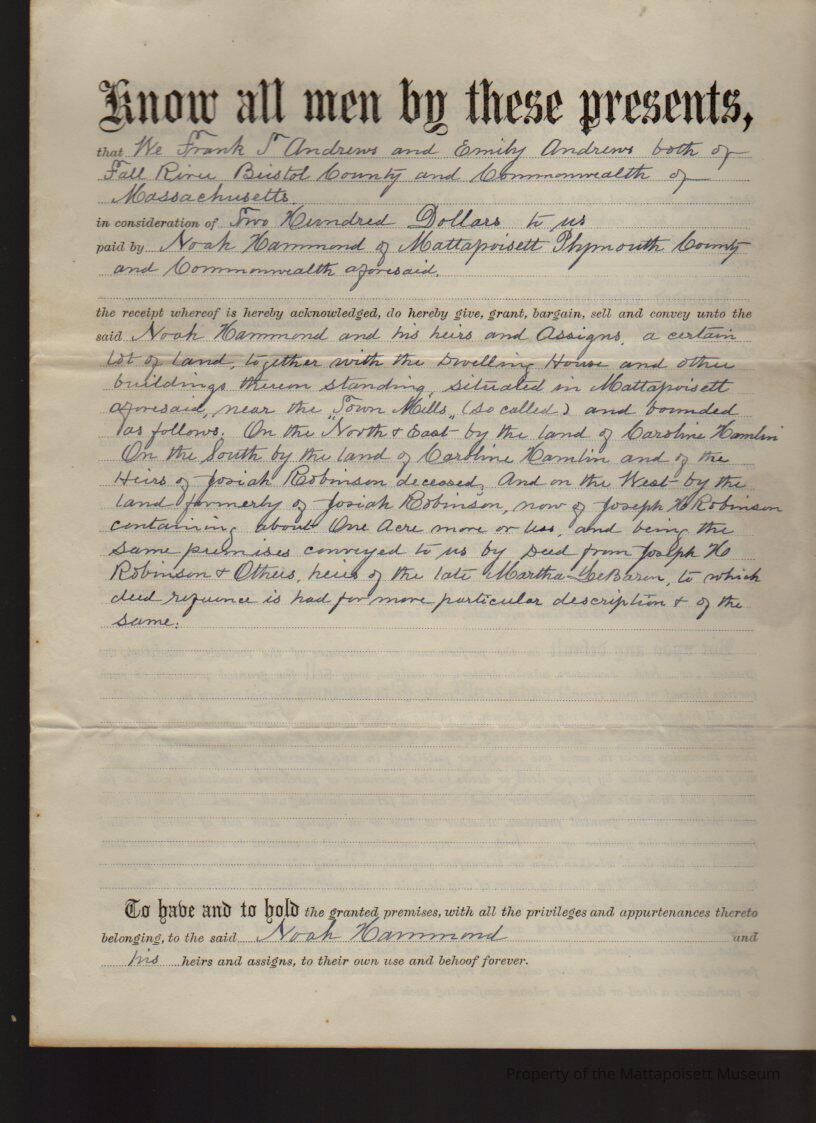 Know all men by these presents,
that We Frank T Andrews and Emily Andrews both of
Fall River Bristol County and Commonwealth of
Massachusetts.
in consideration of Two Hundred Dollars to us
paid by Noah Hammond of Mattapoisett Plymouth County
and Commonwealth aforesaid.
the receipt whereof is hereby acknowledged, do hereby give, grant, bargain, sell and convey unto the
said Noah Hammond and his heirs and Assigns, a certain
lot of land, together with the Dwelling House and other
buildings thereon standing, situated in Mattapoisett
aforesaid, near the "Town Mills" (so called) and bounded
as follows. On the North & East by the land of Caroline Hamlin
On the South by the land of Caroline Hamlin and of the
Heirs of Josiah Robinson deceased, And on the West by the
land formerly of Josiah Robinson, now of Joseph H Robinson
containing about One Acre more or less, and being the
same premises conveyed to us by Deed from Joseph H
Robinson & Others, heirs of the late Martha LeBaron, to which
deed refuence is had for more particular description & of the
same.
To have and to hold the granted premises, with all the privileges and appurtenances thereto
belonging, to the said Noah Hammond and
his heirs and assigns, to their own use and behoof forever.
Property of the Mattapoisett Museum